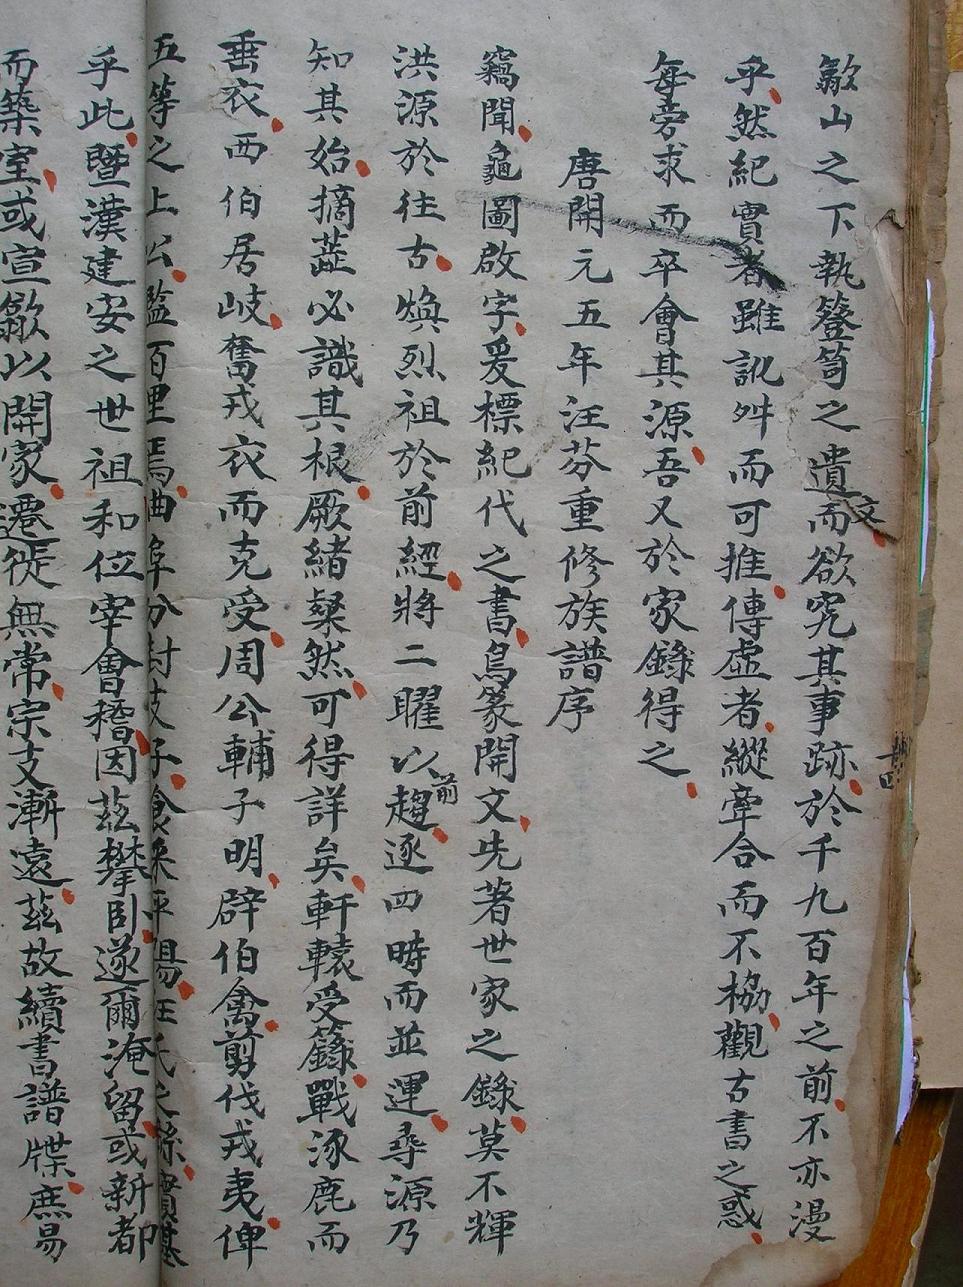 歙山之下執簦笥之遺文而欲究其事跡於千九百年之前不亦漫
乎然紀實者雖訛舛而可推傳虛者縱牽合而不協觀古書之惑
每旁求而卒會其源吾又於家錄得之
唐開元五年汪芬重修族譜序
竊聞龜圖啟字爰標紀代之書鳥篆開文先著世家之錄莫不輝
洪源於往古煥烈祖於前經將二曜以前趨逐四時而並運尋源乃
知其始摘蕋必識其根厥緒粲然可得詳矣軒轅受籙戰涿鹿而
垂衣西伯居岐奮戎衣而克受周公輔子明辟伯禽剪伐戎夷俾
五等之上公監百里焉曲阜分封支子食采平陽汪氏之系實基
乎此暨漢建安之世祖和位宰會稽因茲攀臥遂爾淹留或新都
而築室或宣歙以開家遷徙無常宗支漸遠茲故續書譜牒庶易